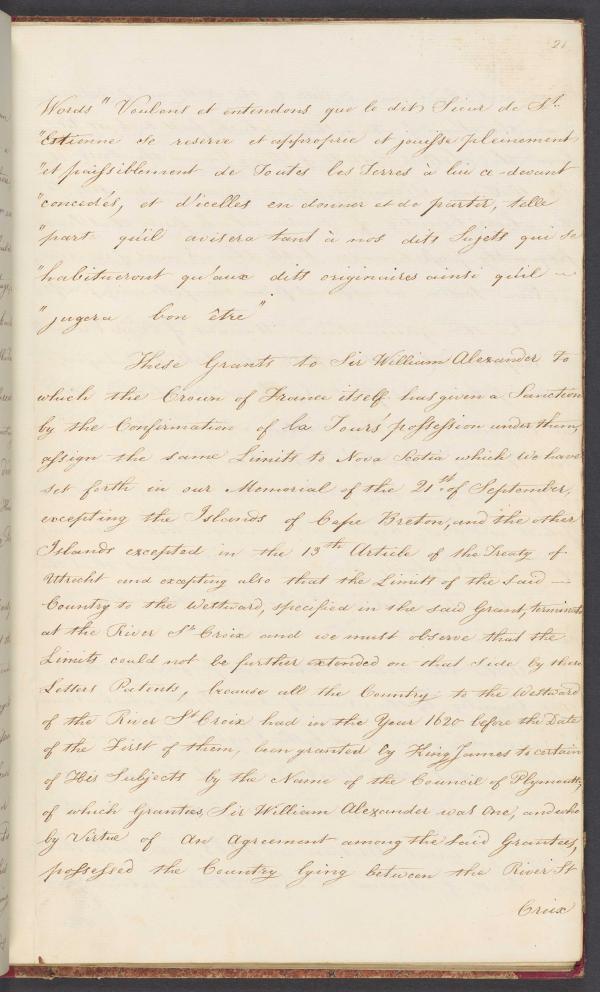 21
Words" Voulons et entendons que le dit Sieur de St.
"Estienne se reserve et approprie et jouisse pleinement
"et paissiblement de Toutes les Terres à lui ce-devant
"concedés, et d'icelles en donner et de partir, telle
"part qu'il avisera tant à nos dits Sujets qui se
"habitueront qu'aux dits originaires ainsi qu'il ~
"jugera bon être".
These Grants to Sir William Alexander to
which the Crown of France itself has given a Sanction
by the Confirmation of la Tours' possession under them,
assign the same Limits to Nova Scotia which we have
set forth in our Memorial of the 21st of September,
excepting the Islands of Cape Breton, and the other
Islands excepted in the 13th Article of the Treaty of
Utrecht and excepting also that the Limits of the said —
Country to the Westward, specified in the said Grant, terminate
at the River St Croix and we must observe that the
Limits could not be further extended on that Side by these
Letters Patents, because all the Country to the Westward
of the River St Croix had in the Year 1620 before the Date
of the First of them, been granted by King James to certain
of His Subjects by the Name of the Council of Plymouth,
of which Grantees, Sir William Alexander was One, and who
by Virtue of an Agreement among the said Grantees,
possessed the Country lying between the River St
Croix